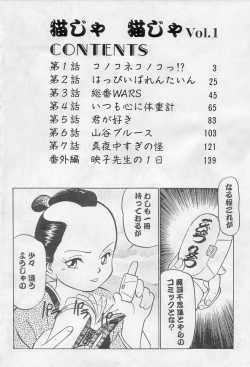 猫じゃ 猫じゃ Vol.1
CONTENTS
第1話 コノコネコノコっ!? 3
第2話 はっぴいばれんたいん 25
第3話 総番WARS 45
第4話 いつも心に体重計 65
第5話 君が好き 83
第6話 山谷ブルース 103
第7話 真夜中すぎの怪 121
番外編 映子先生の1日 139
なる程これが
摩訶不思議とやらの
コミックとな?
わしも一冊
持っておるが
少々 違う
ようじゃの